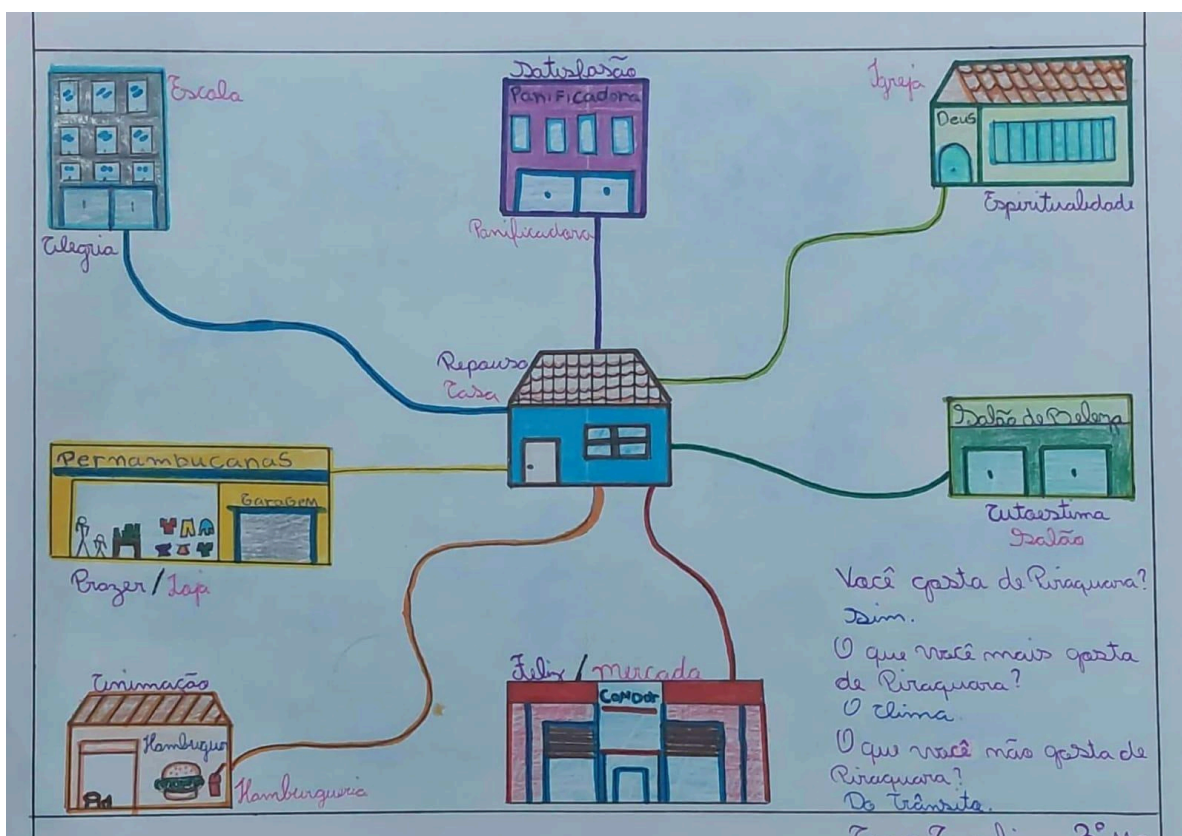 Escola
Alegria
Satisfasão
Panificadora
Panificadora
Igreja
Deus
Espiritualidade
Repouso
Casa
Pernambucanas
Garagem
Prazer / Loja
Salão de Beleza
Autoestima
Salão
Animação
Hamburguer
Hamburgueria
Feliz / mercado
Condor
Você gosta de Piraquara?
Sim.
O que você mais gosta
de Piraquara?
O clima.
O que você não gosta de
Piraquara?
Do trânsito.